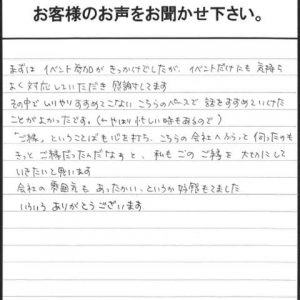 お客様のお声をお聞かせ下さい。
まずは イベント参加が きっかけでしたが、イベントだけでも 気持ち
よく 対応していただき 感謝してます
その中で ムリやりすすめてこない こちらのペースで 話をすすめていけた
ことが よかったです。(やはり 忙しい時もあるので)
「ご縁」ということばも 心を打ち、こちらの会社へ 伺ったのも
きっと ご縁だったんだなぁと、私も このご縁を 大切にして
いきたいと思います
会社の 雰囲気も あったかい、というか 好感もてました
いろいろ ありがとうございます